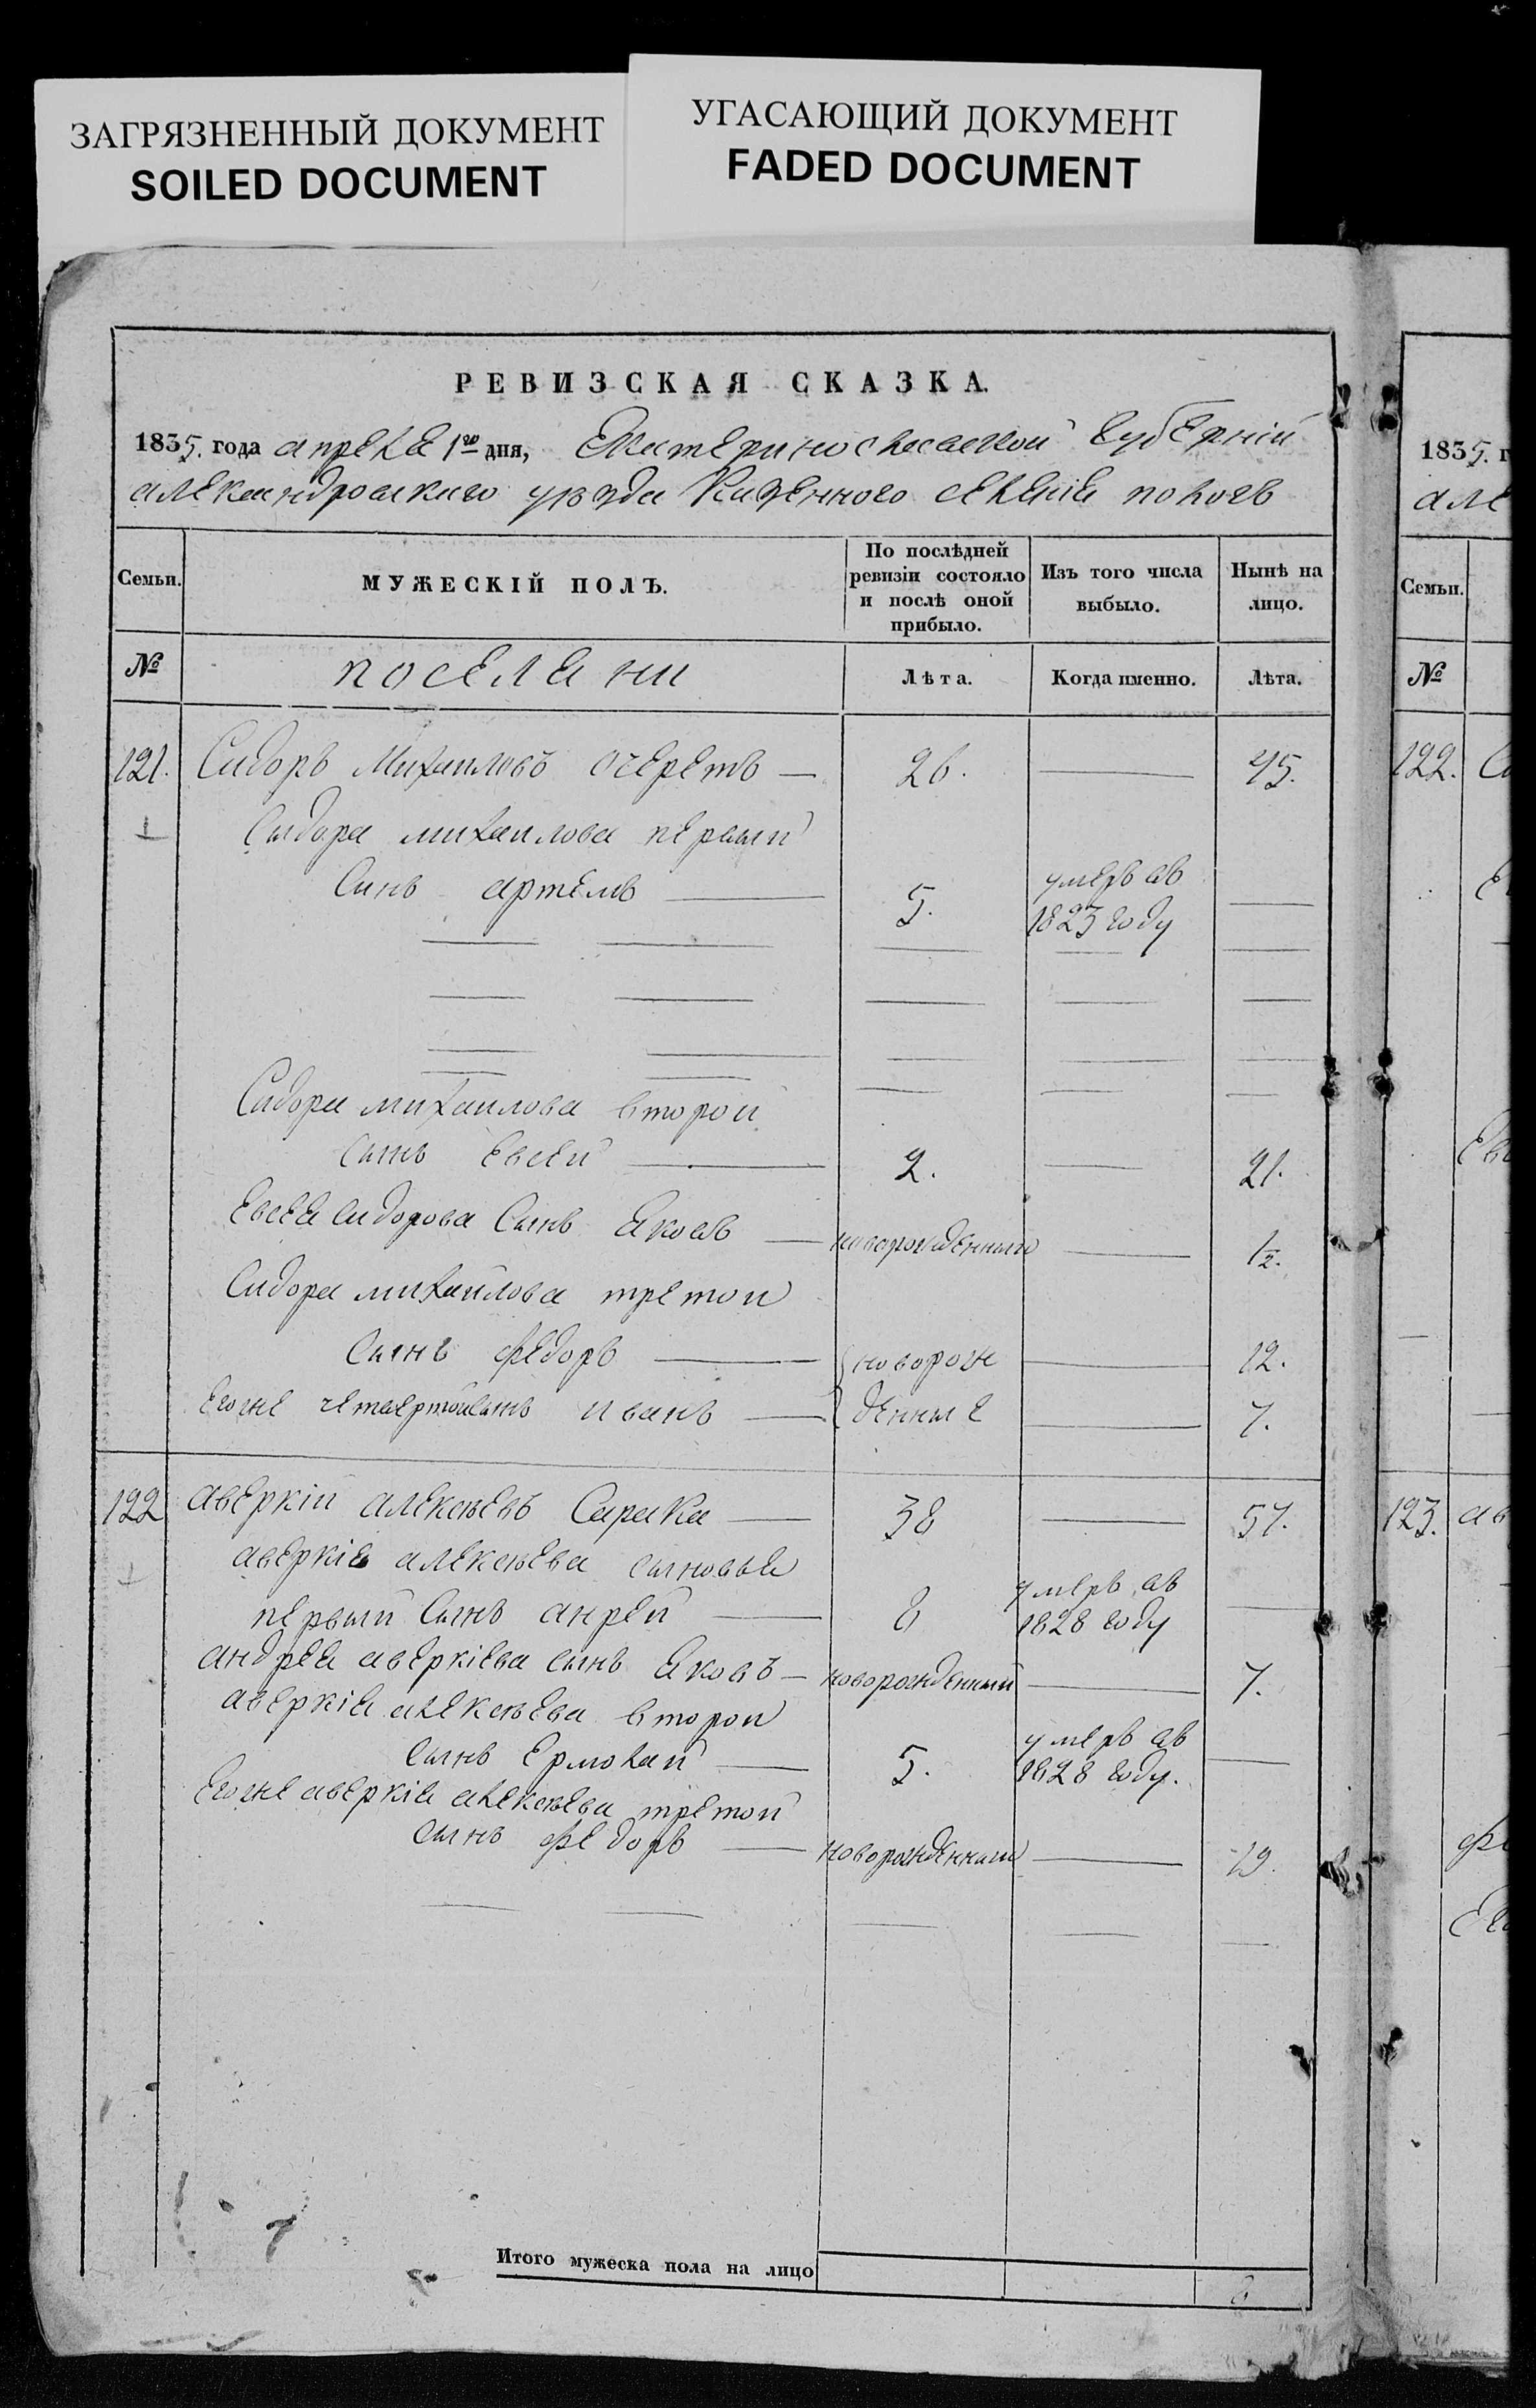 ЗАГРЯЗНЕННЫЙ ДОКУМЕНТ
SOILED DOCUMENT
УГАСАЮЩИЙ ДОКУМЕНТ
FADED DOCUMENT
РЕВИЗСКАЯ СКАЗКА.
1835. года апреля 1го дня, Екатеринославской Губерніи
александровскаго уезда Казенного селенія пологъ
Семьи. МУЖЕСКІЙ ПОЛЪ. По послѣдней ревизіи состояло и послѣ оной прибыло. Изъ того числа выбыло. Нынѣ на лицо.
№ поселяни Лѣта. Когда именно. Лѣта.
121. Сидоръ Михаиловъ очеретъ — 26. — 45.
Сидора михаилова первый
Синъ артемъ — 5. умеръ въ 1823 году —
Сидора михаилова второй
Сынъ Евсей — 2. — 21.
Евсея Сидорова Сынъ Яковъ — новорожденный — 1/2.
Сидора михайлова третой
Сынъ федоръ — новорож — 12.
Егоже четвертойсынъ иванъ — денные — 7.
122 аверкій алексѣевъ Сарака — 38 — 57.
аверкія алексѣева сыновья
первый Сынъ анрей — 8 умеръ въ 1828 году —
андрея аверкіева сынъ Яковъ — новорожденный — 7.
аверкія алексѣева второй
сынъ Ермолай — 5. умеръ въ 1828 году. —
Егоже аверкія алексѣева третой
сынъ федоръ — новорожденный — 19.
Итого мужеска пола на лицо
1835. г
але
Семьи.
№
122.
123. ав